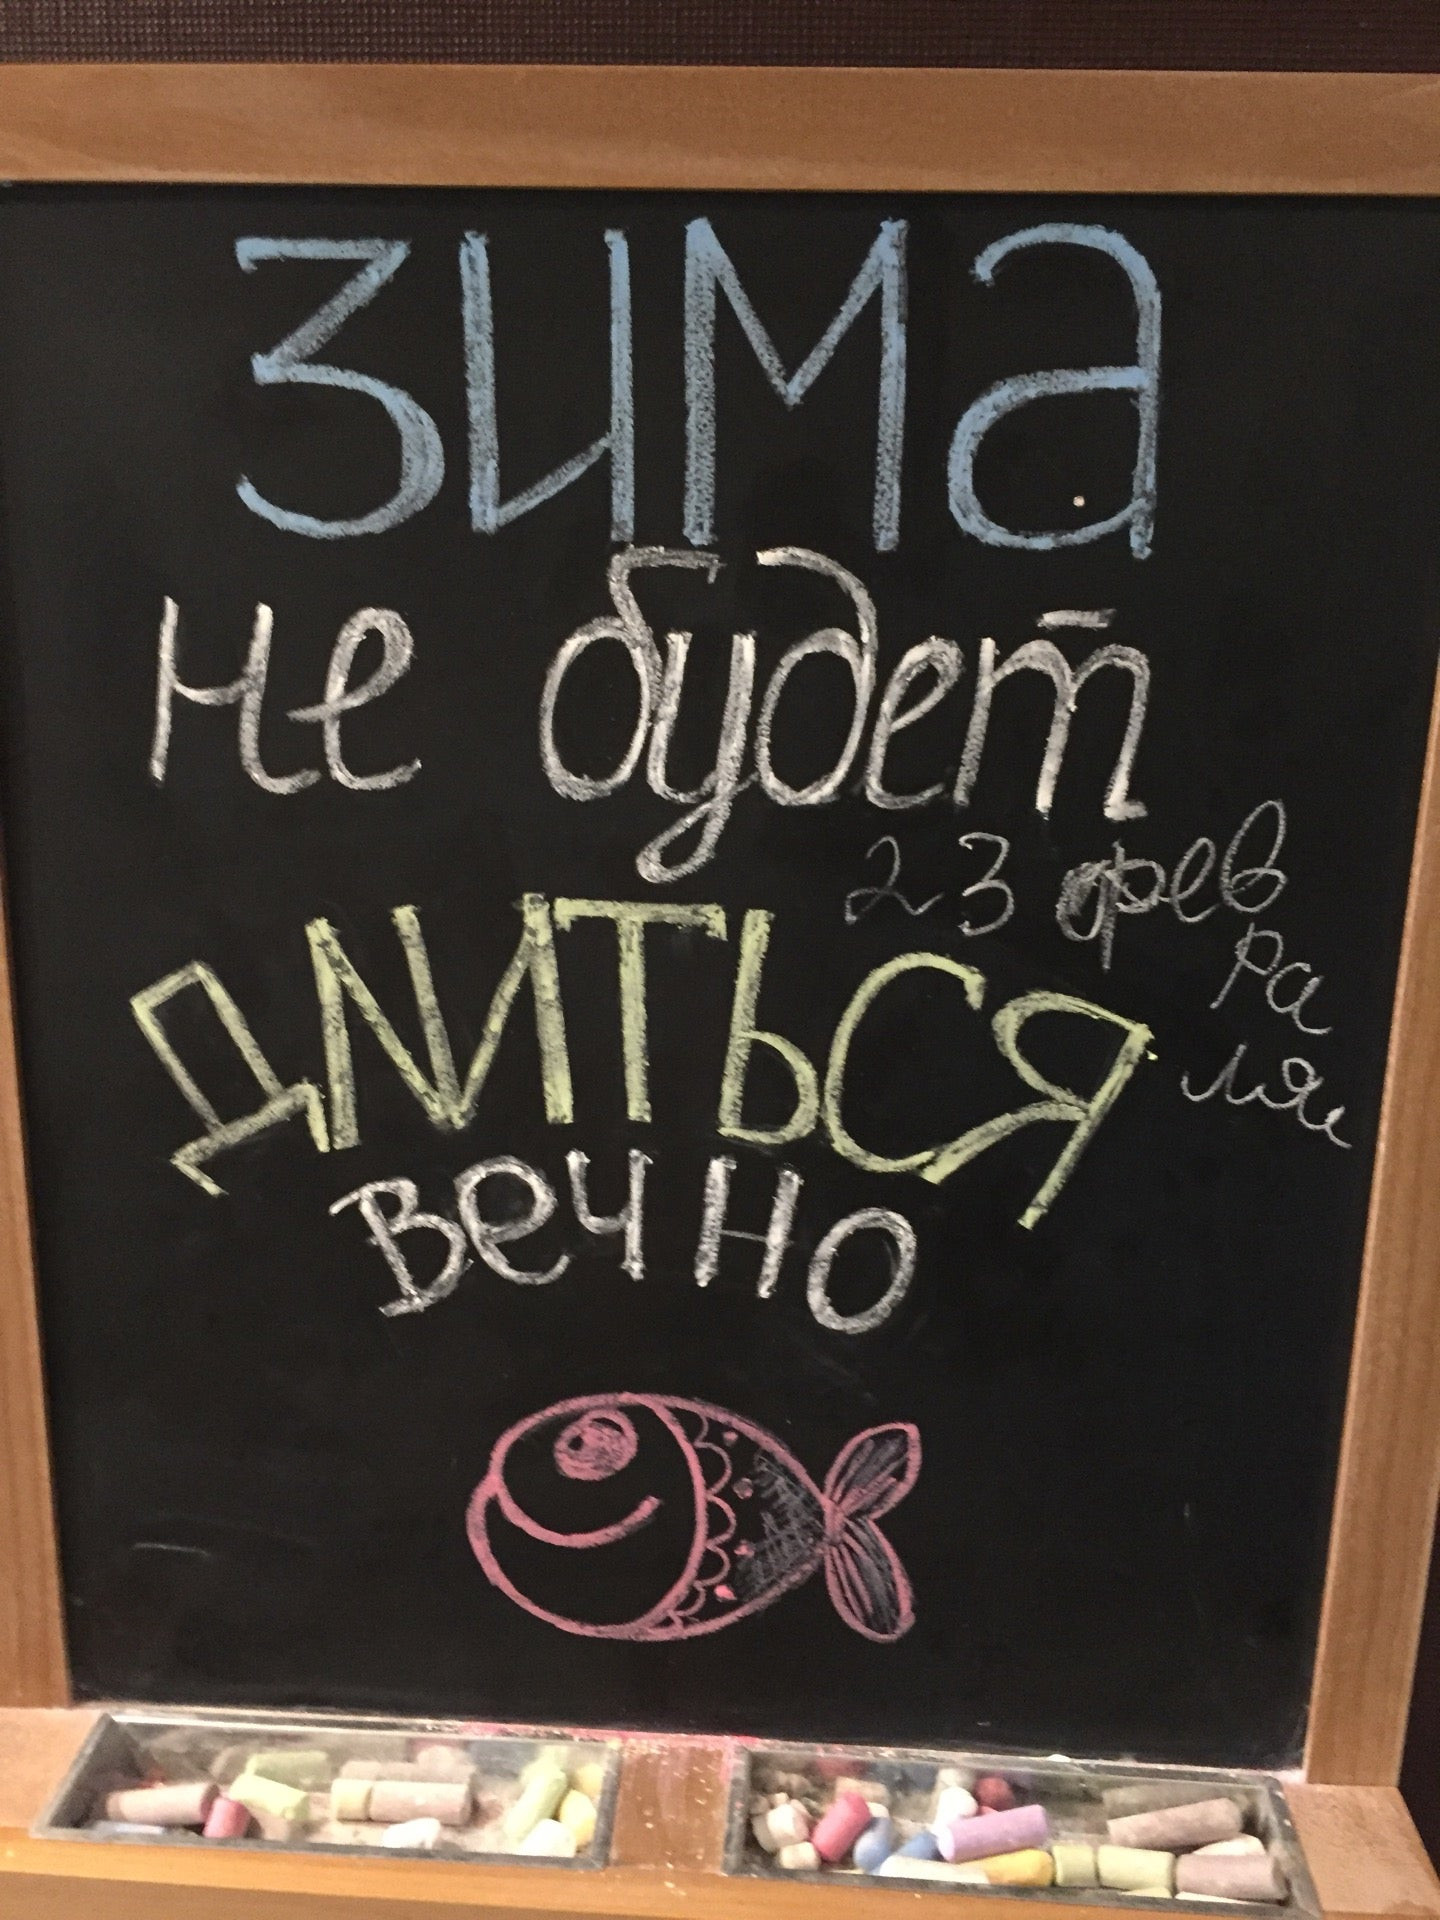 Зима
не будет
23 фев
ра
ля
длиться
вечно